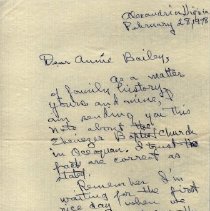 Alexandria Virginia
February 28, 1978
Dear Annie Bailey,
As a matter
of family history,
yours and mine, I
am sending you this
note about
Ebenezer Baptist Church
in Occoquan, I trust the
facts are correct as
stated.
Remember I'm
waiting for the first
nice day when we